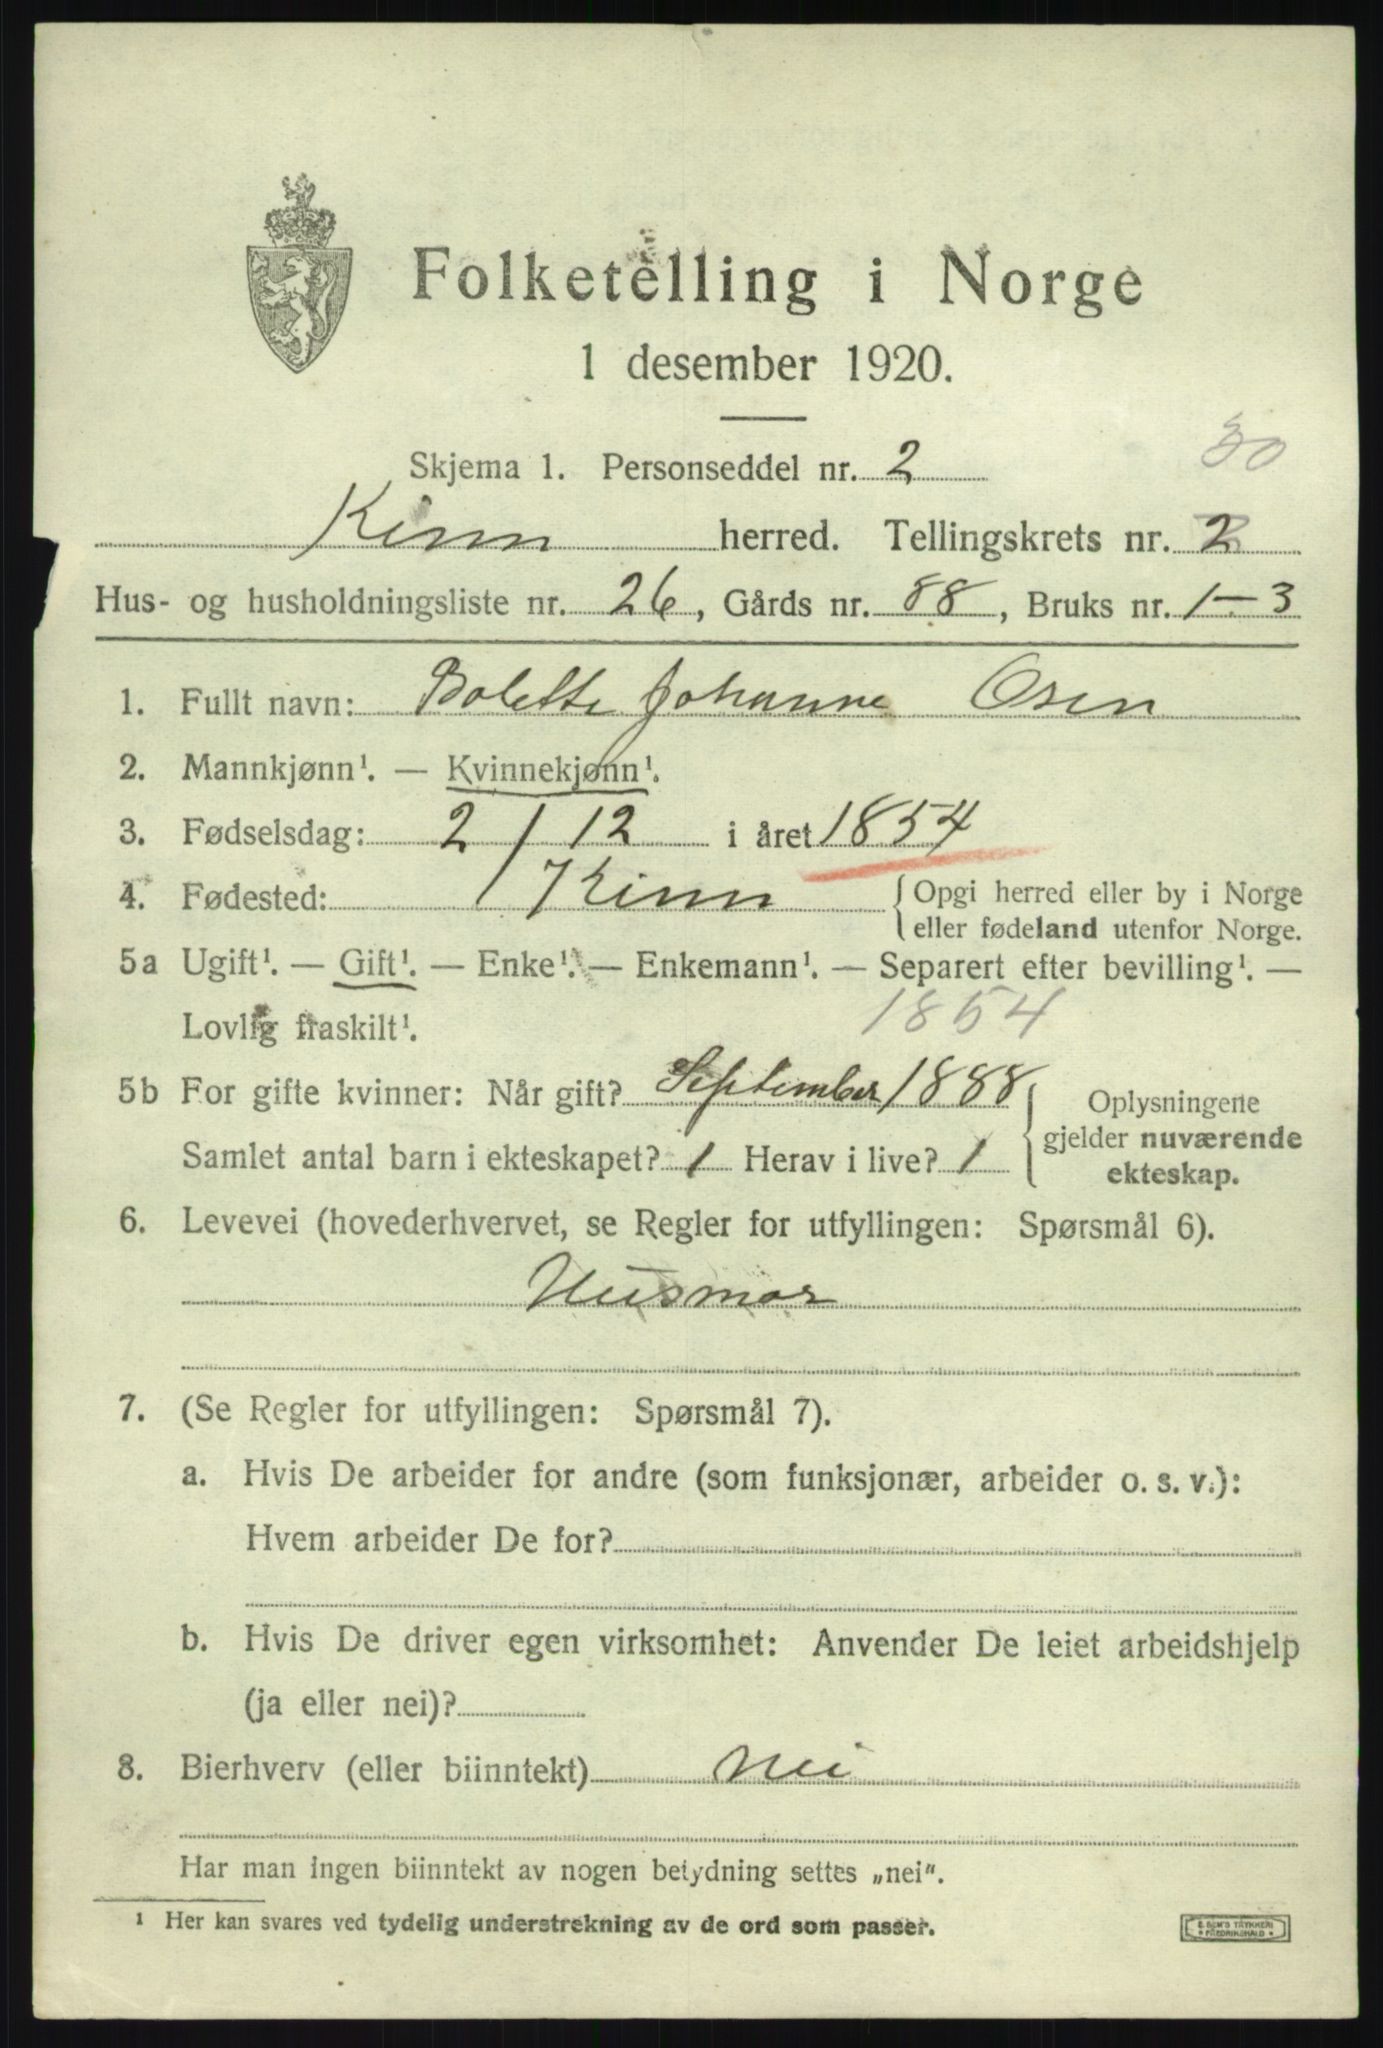 Folketelling i Norge
1 desember 1920.
30
Skjema 1. Personseddel nr. 2
Kinn herred. Tellingskrets nr. 2
Hus- og husholdningsliste nr. 26, Gårds nr. 88, Bruks nr. 1-3
1. Fullt navn: Bolette Johanne Osen
2. Mannkjønn¹. — Kvinnekjønn¹.
3. Fødselsdag: 2/12 i året 1854
4. Fødested: Kinn { Opgi herred eller by i Norge
eller fødeland utenfor Norge.
5a Ugift¹. — Gift¹. — Enke¹. — Enkemann¹. — Separert efter bevilling¹. —
Lovlig fraskilt¹. 1854
5b For gifte kvinner: Når gift? September 1888 { Oplysningene
Samlet antal barn i ekteskapet? 1 Herav i live? 1 gjelder nuværende
ekteskap.
6. Levevei (hovederhvervet, se Regler for utfyllingen: Spørsmål 6).
Husmor
7. (Se Regler for utfyllingen: Spørsmål 7).
a. Hvis De arbeider for andre (som funksjonær, arbeider o. s. v.):
Hvem arbeider De for?
b. Hvis De driver egen virksomhet: Anvender De leiet arbeidshjelp
(ja eller nei)?
8. Bierhverv (eller biinntekt) Nei
Har man ingen biinntekt av nogen betydning settes „nei“.
¹ Her kan svares ved tydelig understrekning av de ord som passer.
TRYKKERI
FREDRIKSHALD